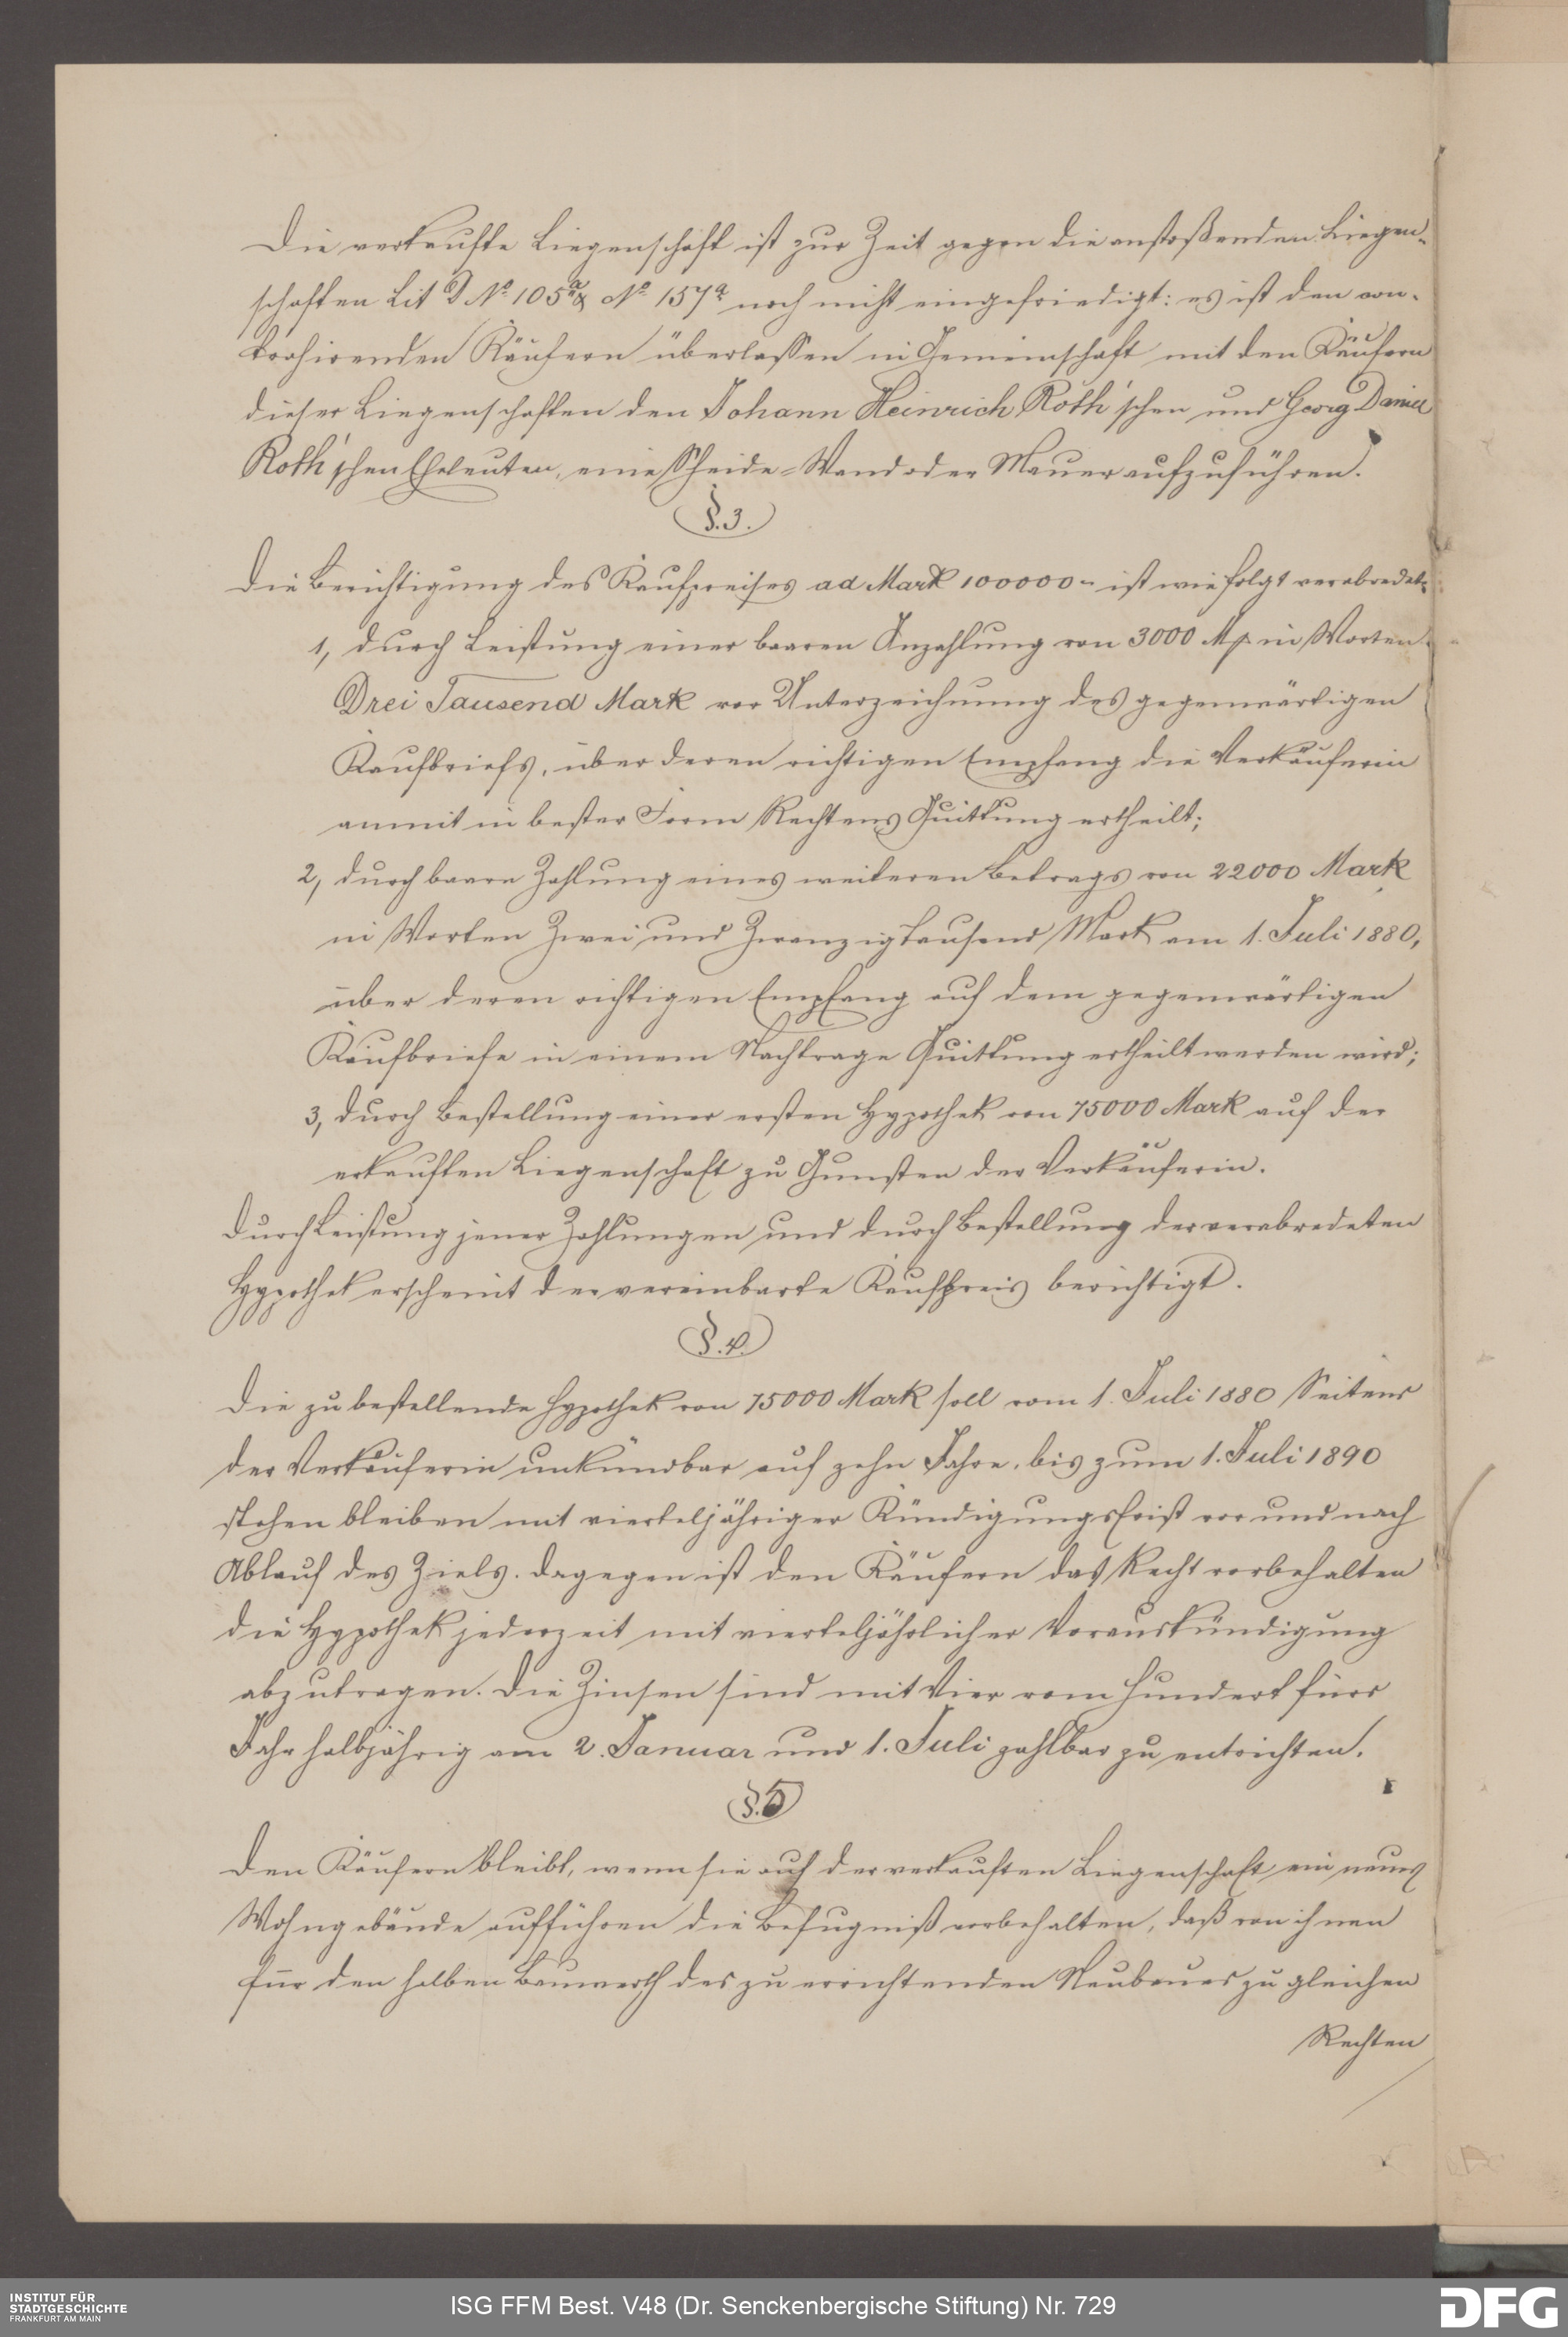 Die verkaufte Liegenschaft ist zur Zeit gegen die anstoßenden Liegen-
schaften Lit D No. 105a & No. 157a noch nicht eingefriedigt: es ist den con-
trahirenden Käufern überlassen in Gemeinschaft mit den Käufern
dieser Liegenschaften den Johann Heinrich Roth'schen und Georg Daniel
Roth'schen Eheleuten, eine Scheide-Wand oder Mauer aufzuführen.
§. 3.
Die Berichtigung des Kaufpreises ad Mark 100000 - ist wie folgt verabredet:
1, durch Leistung einer baaren Anzahlung von 3000 Mk. in Worten
Drei Tausend Mark vor Unterzeichnung des gegenwärtigen
Kaufbriefs, über deren richtigen Empfang die Verkäuferin
anmit in bester Form Rechtens Quittung ertheilt;
2, durch baare Zahlung eines weiteren Betrags von 22000 Mark
in Worten Zwei und Zwanzig tausend Mark am 1. Juli 1880,
über deren richtigen Empfang auf dem gegenwärtigen
Kaufbriefe in einem Nachtrage Quittung ertheilt werden wird;
3, durch Bestellung einer ersten Hypothek von 75000 Mark auf der
erkauften Liegenschaft zu Gunsten der Verkäuferin.
Durch Leistung jener Zahlungen und durch Bestellung der verabredeten
Hypothek erscheint der vereinbarte Kaufpreis berichtigt.
§. 4.
Die zu bestellende Hypothek von 75000 Mark soll vom 1. Juli 1880 Seitens
der Verkäuferin unkündbar auf zehn Jahre, bis zum 1. Juli 1890
stehen bleiben mit vierteljähriger Kündigungsfrist vor und nach
Ablauf des Ziels. Dagegen ist den Käufern das Recht vorbehalten
die Hypothek jederzeit mit vierteljährlicher Vorauskündigung
abzutragen. Die Zinsen sind mit Vier vom Hundert fürs
Jahr halbjährig am 2. Januar und 1. Juli zahlbar zu entrichten.
§. 5
Den Käufern bleibt, wenn sie auf der verkauften Liegenschaft ein neues
Wohngebäude aufführen die Befugniß vorbehalten, daß von ihnen
für den halben Bauwerth des zu errichtenden Neubaues zu gleichen
Rechten
INSTITUT FÜR
STADTGESCHICHTE
FRANKFURT AM MAIN
ISG FFM Best. V48 (Dr. Senckenbergische Stiftung) Nr. 729
DFG